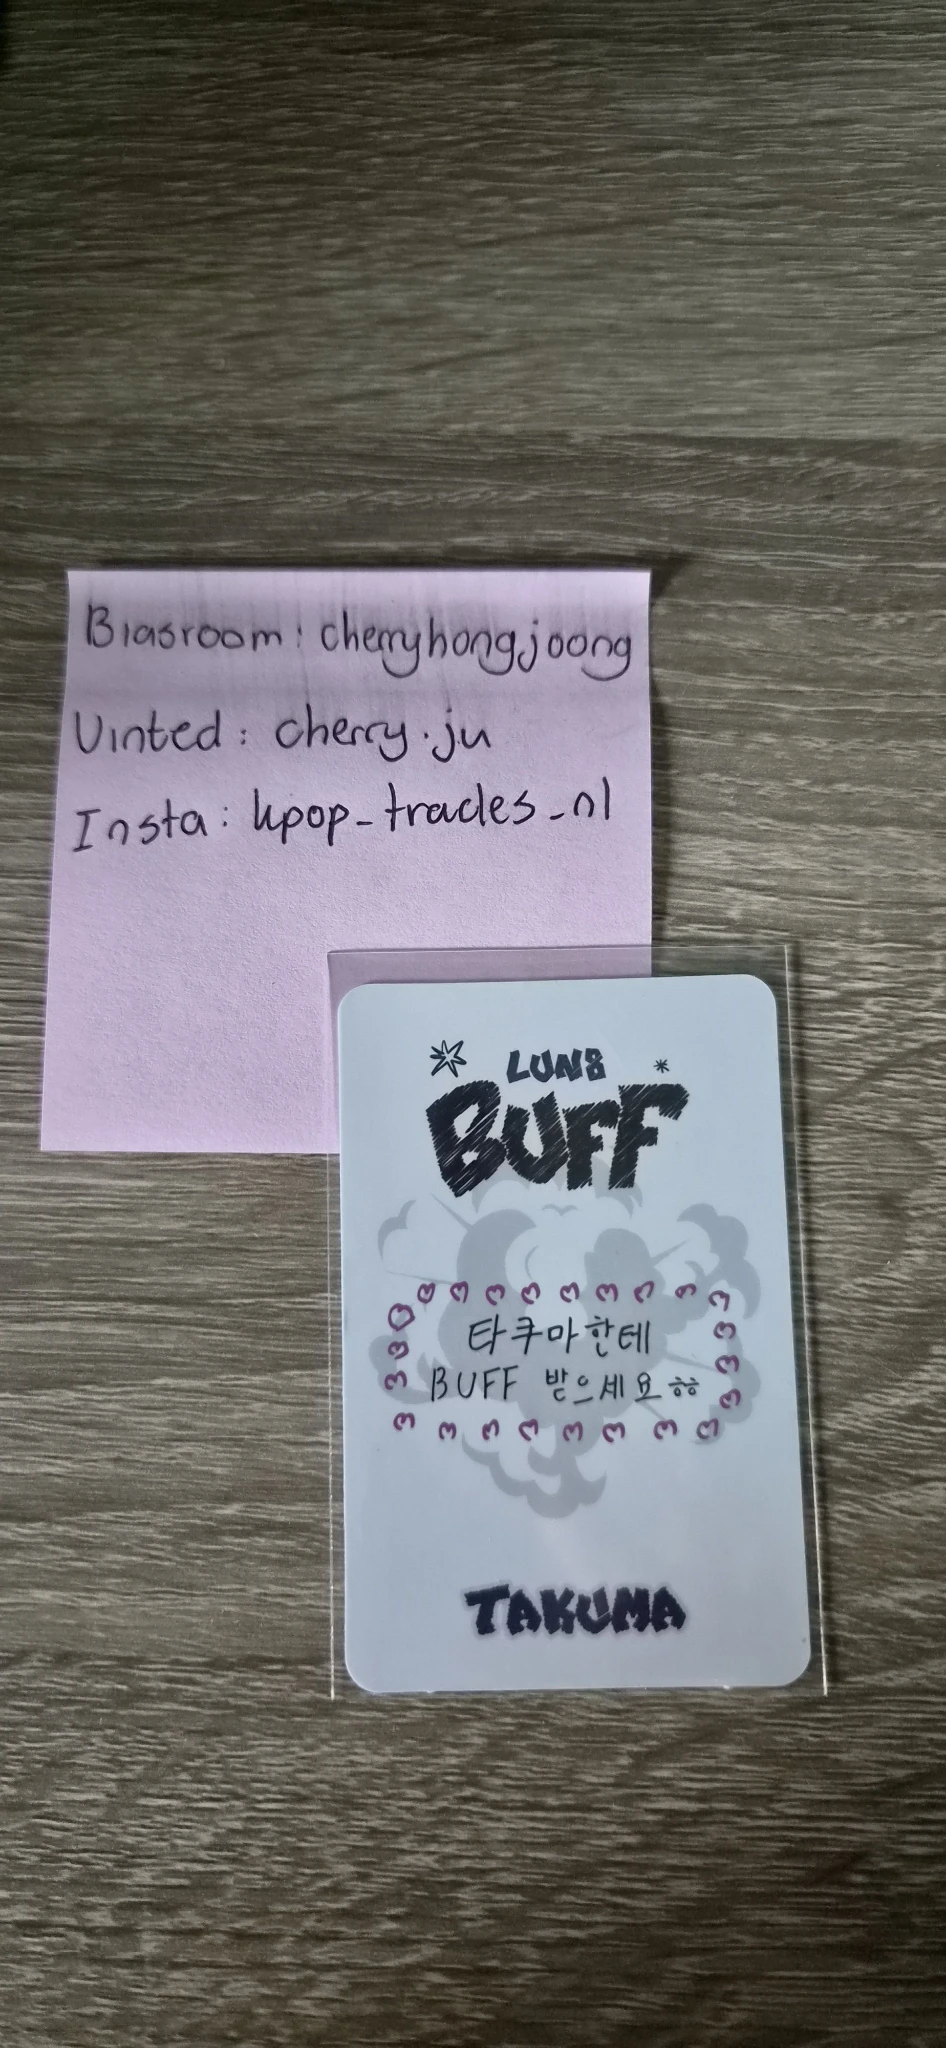 Biasroom: cherryhongjoong
Vinted: cherry.ju
Insta: kpop_trades_nl
LUN8
BUFF
타쿠마한테
BUFF 받으세요ㅎㅎ
TAKUMA